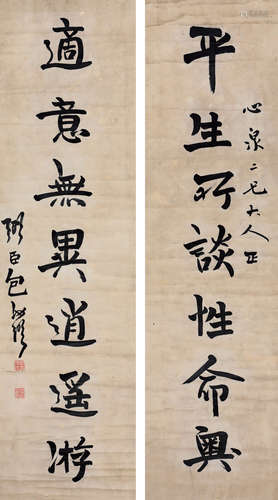 平生所談性命奧
心泉二兄大人正
適意無異逍遥游
臣包